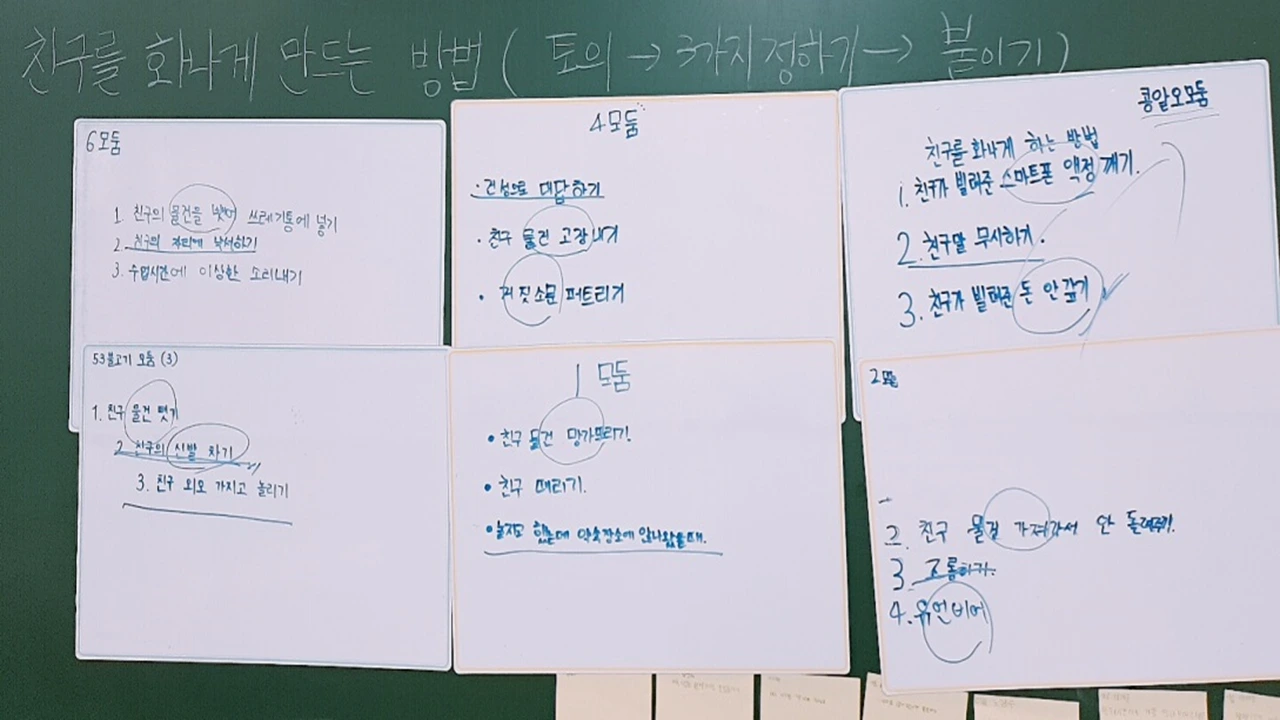 친구를 화나게 만드는 방법 ( 토의 → 3가지 정하기 → 붙이기 )
6모둠
1. 친구의 물건을 뺏어 쓰레기통에 넣기
2. 친구의 자리에 낙서하기
3. 수업시간에 이상한 소리내기
4모둠
· 건성으로 대답하기
· 친구 물건 고장내기
· 거짓소문 퍼트리기
콩알오모둠
친구를 화나게 하는 방법
1. 친구가 빌려준 스마트폰 액정 깨기.
2. 친구말 무시하기.
3. 친구가 빌려준 돈 안 갚기
53불고기 모둠 (3)
1. 친구 물건 뺏기
2. 친구의 신발 차기
3. 친구 외모 가지고 놀리기
1 모둠
• 친구 물건 망가뜨리기!
• 친구 때리기.
• 놀자고 했는데 약속장소에 안나왔을때.
2모둠
2. 친구 물건 가져가서 안 돌려주기!
3. 조롱하기.
4. 유언비어